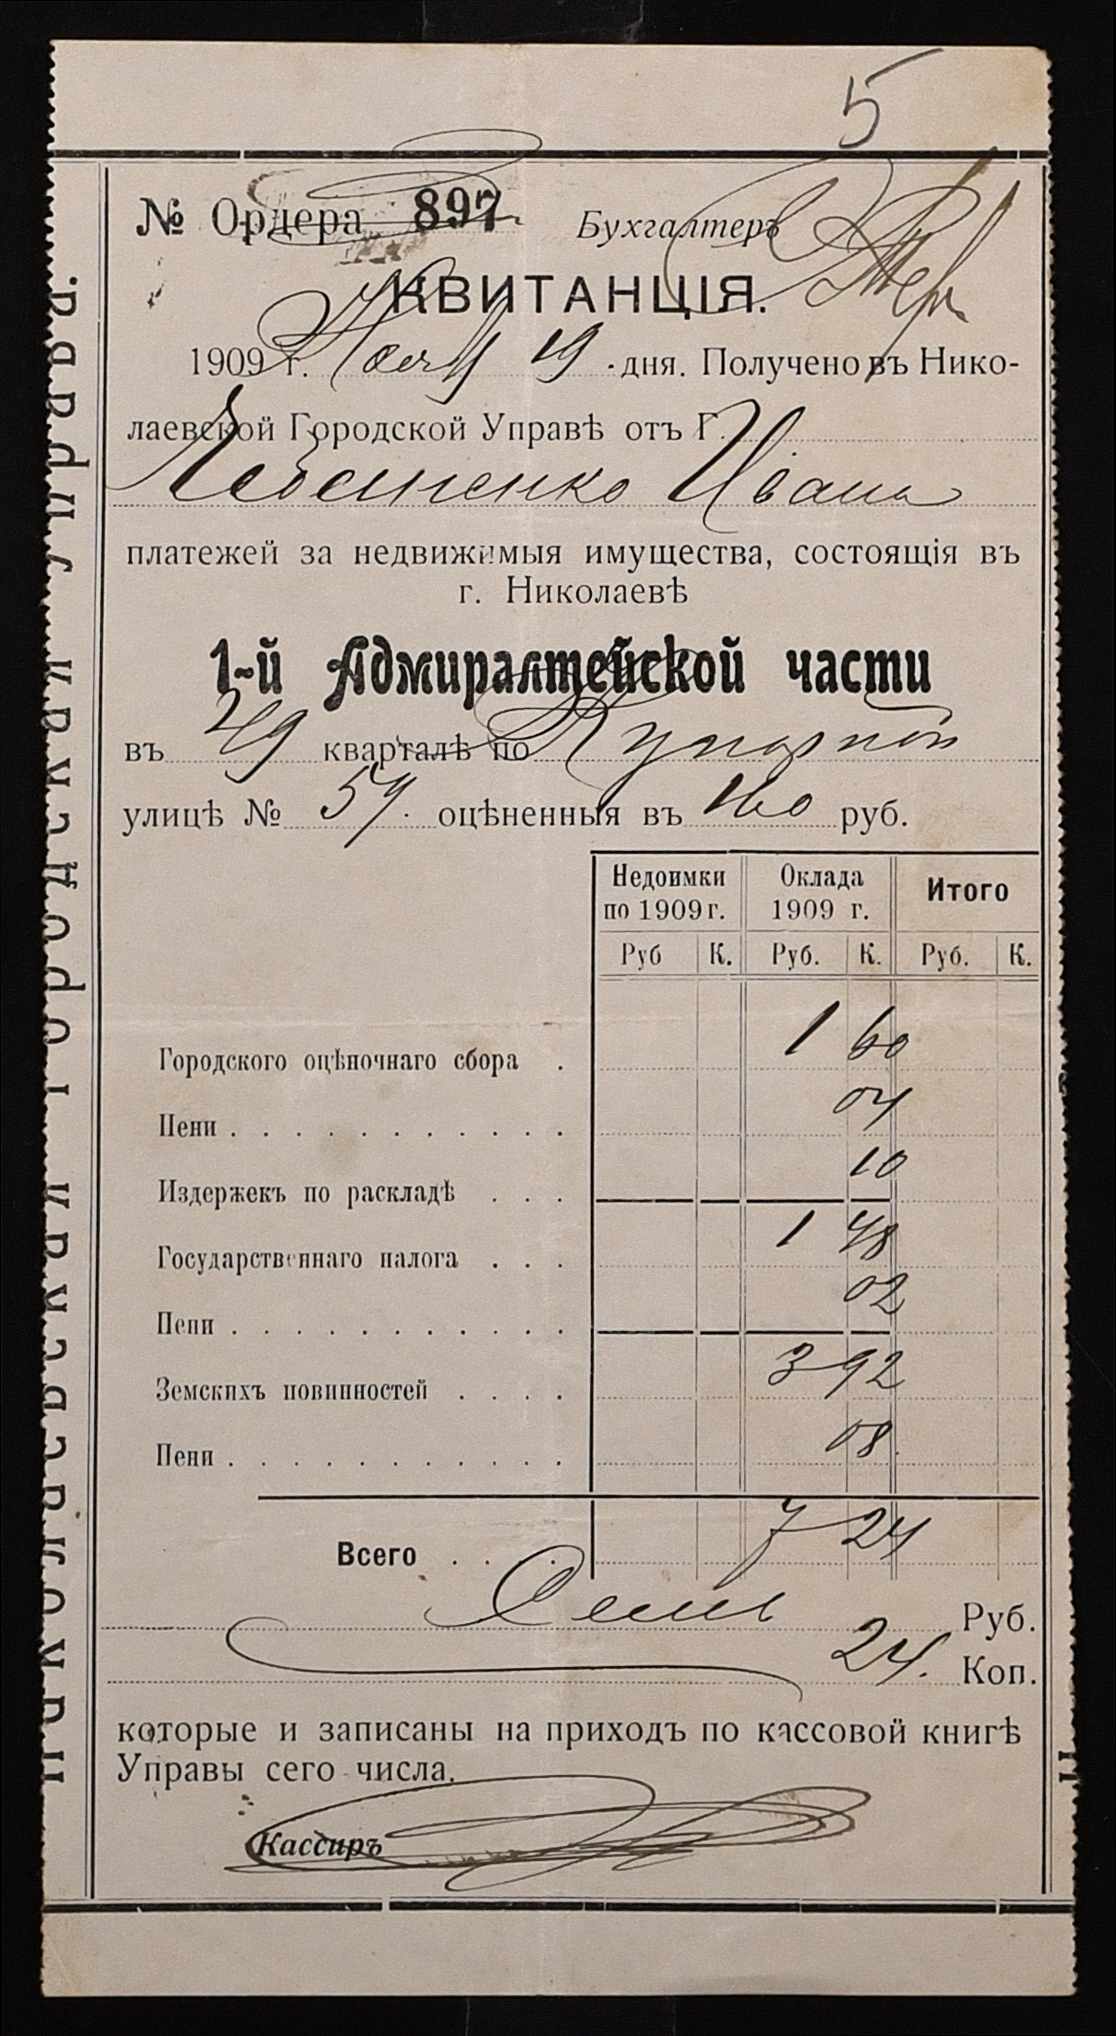 5
№ Ордера 897 Бухгалтеръ
КВИТАНЦІЯ.
1909 г. 19 дня. Получено въ Нико-
лаевской Городской Управѣ отъ Г.
Иванъ
платежей за недвижимыя имущества, состоящія въ
г. Николаевѣ
1-й Адмиралтейской части
въ 49 кварталѣ по Купорной
улицѣ № оцѣненныя въ 160 руб.
Недоимки по 1909 г. Оклада 1909 г. Итого
Руб К. Руб. К. Руб. К.
Городского оцѣночнаго сбора . 1 60
Пени . . . . . . . . . . . 04
Издержекъ по раскладѣ . . . 10
Государственнаго налога . . . 1 48
Пени . . . . . . . . . . . 02
Земскихъ повинностей . . . . 3 92
Пени . . . . . . . . . . . 08
Всего . . . . 7 24
Семь Руб.
24. Коп.
которые и записаны на приходъ по кассовой книгѣ
Управы сего числа.
Кассиръ